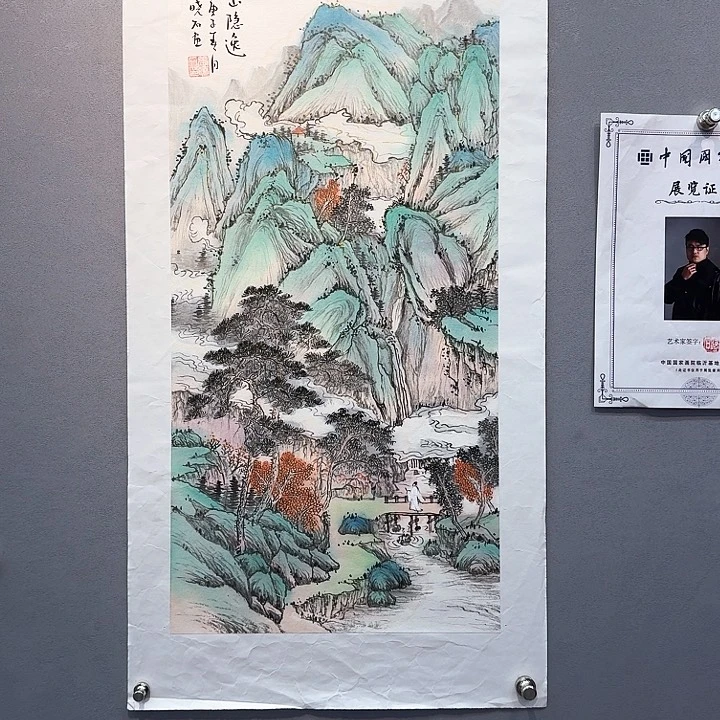 山隐逸
庚子春月
晓石画
中国国
展览证
艺术家签字:
中国国家画院临沂基地